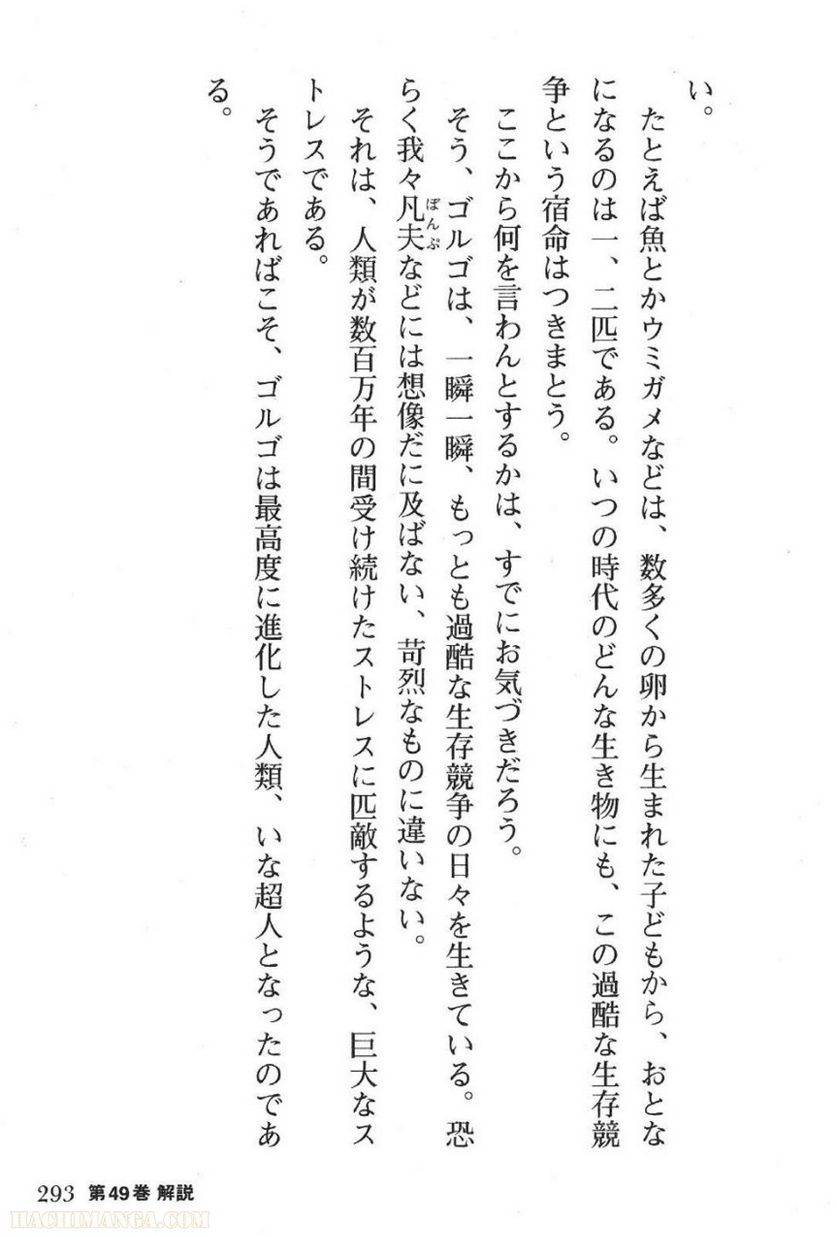 い。
たとえば魚とかウミガメなどは、数多くの卵から生まれた子どもから、おとな
になるのは一、二匹である。いつの時代のどんな生き物にも、この過酷な生存競
争という宿命はつきまとう。
ここから何を言わんとするかは、すでにお気づきだろう。
そう、ゴルゴは、一瞬一瞬、もっとも過酷な生存競争の日々を生きている。恐
らく我々凡夫などには想像だに及ばない、苛烈なものに違いない。
ぼんぷ
それは、人類が数百万年の間受け続けたストレスに匹敵するような、巨大なス
トレスである。
そうであればこそ、ゴルゴは最高度に進化した人類、いな超人となったのであ
る。
293 第49巻 解説
HACHIMANGA.COM